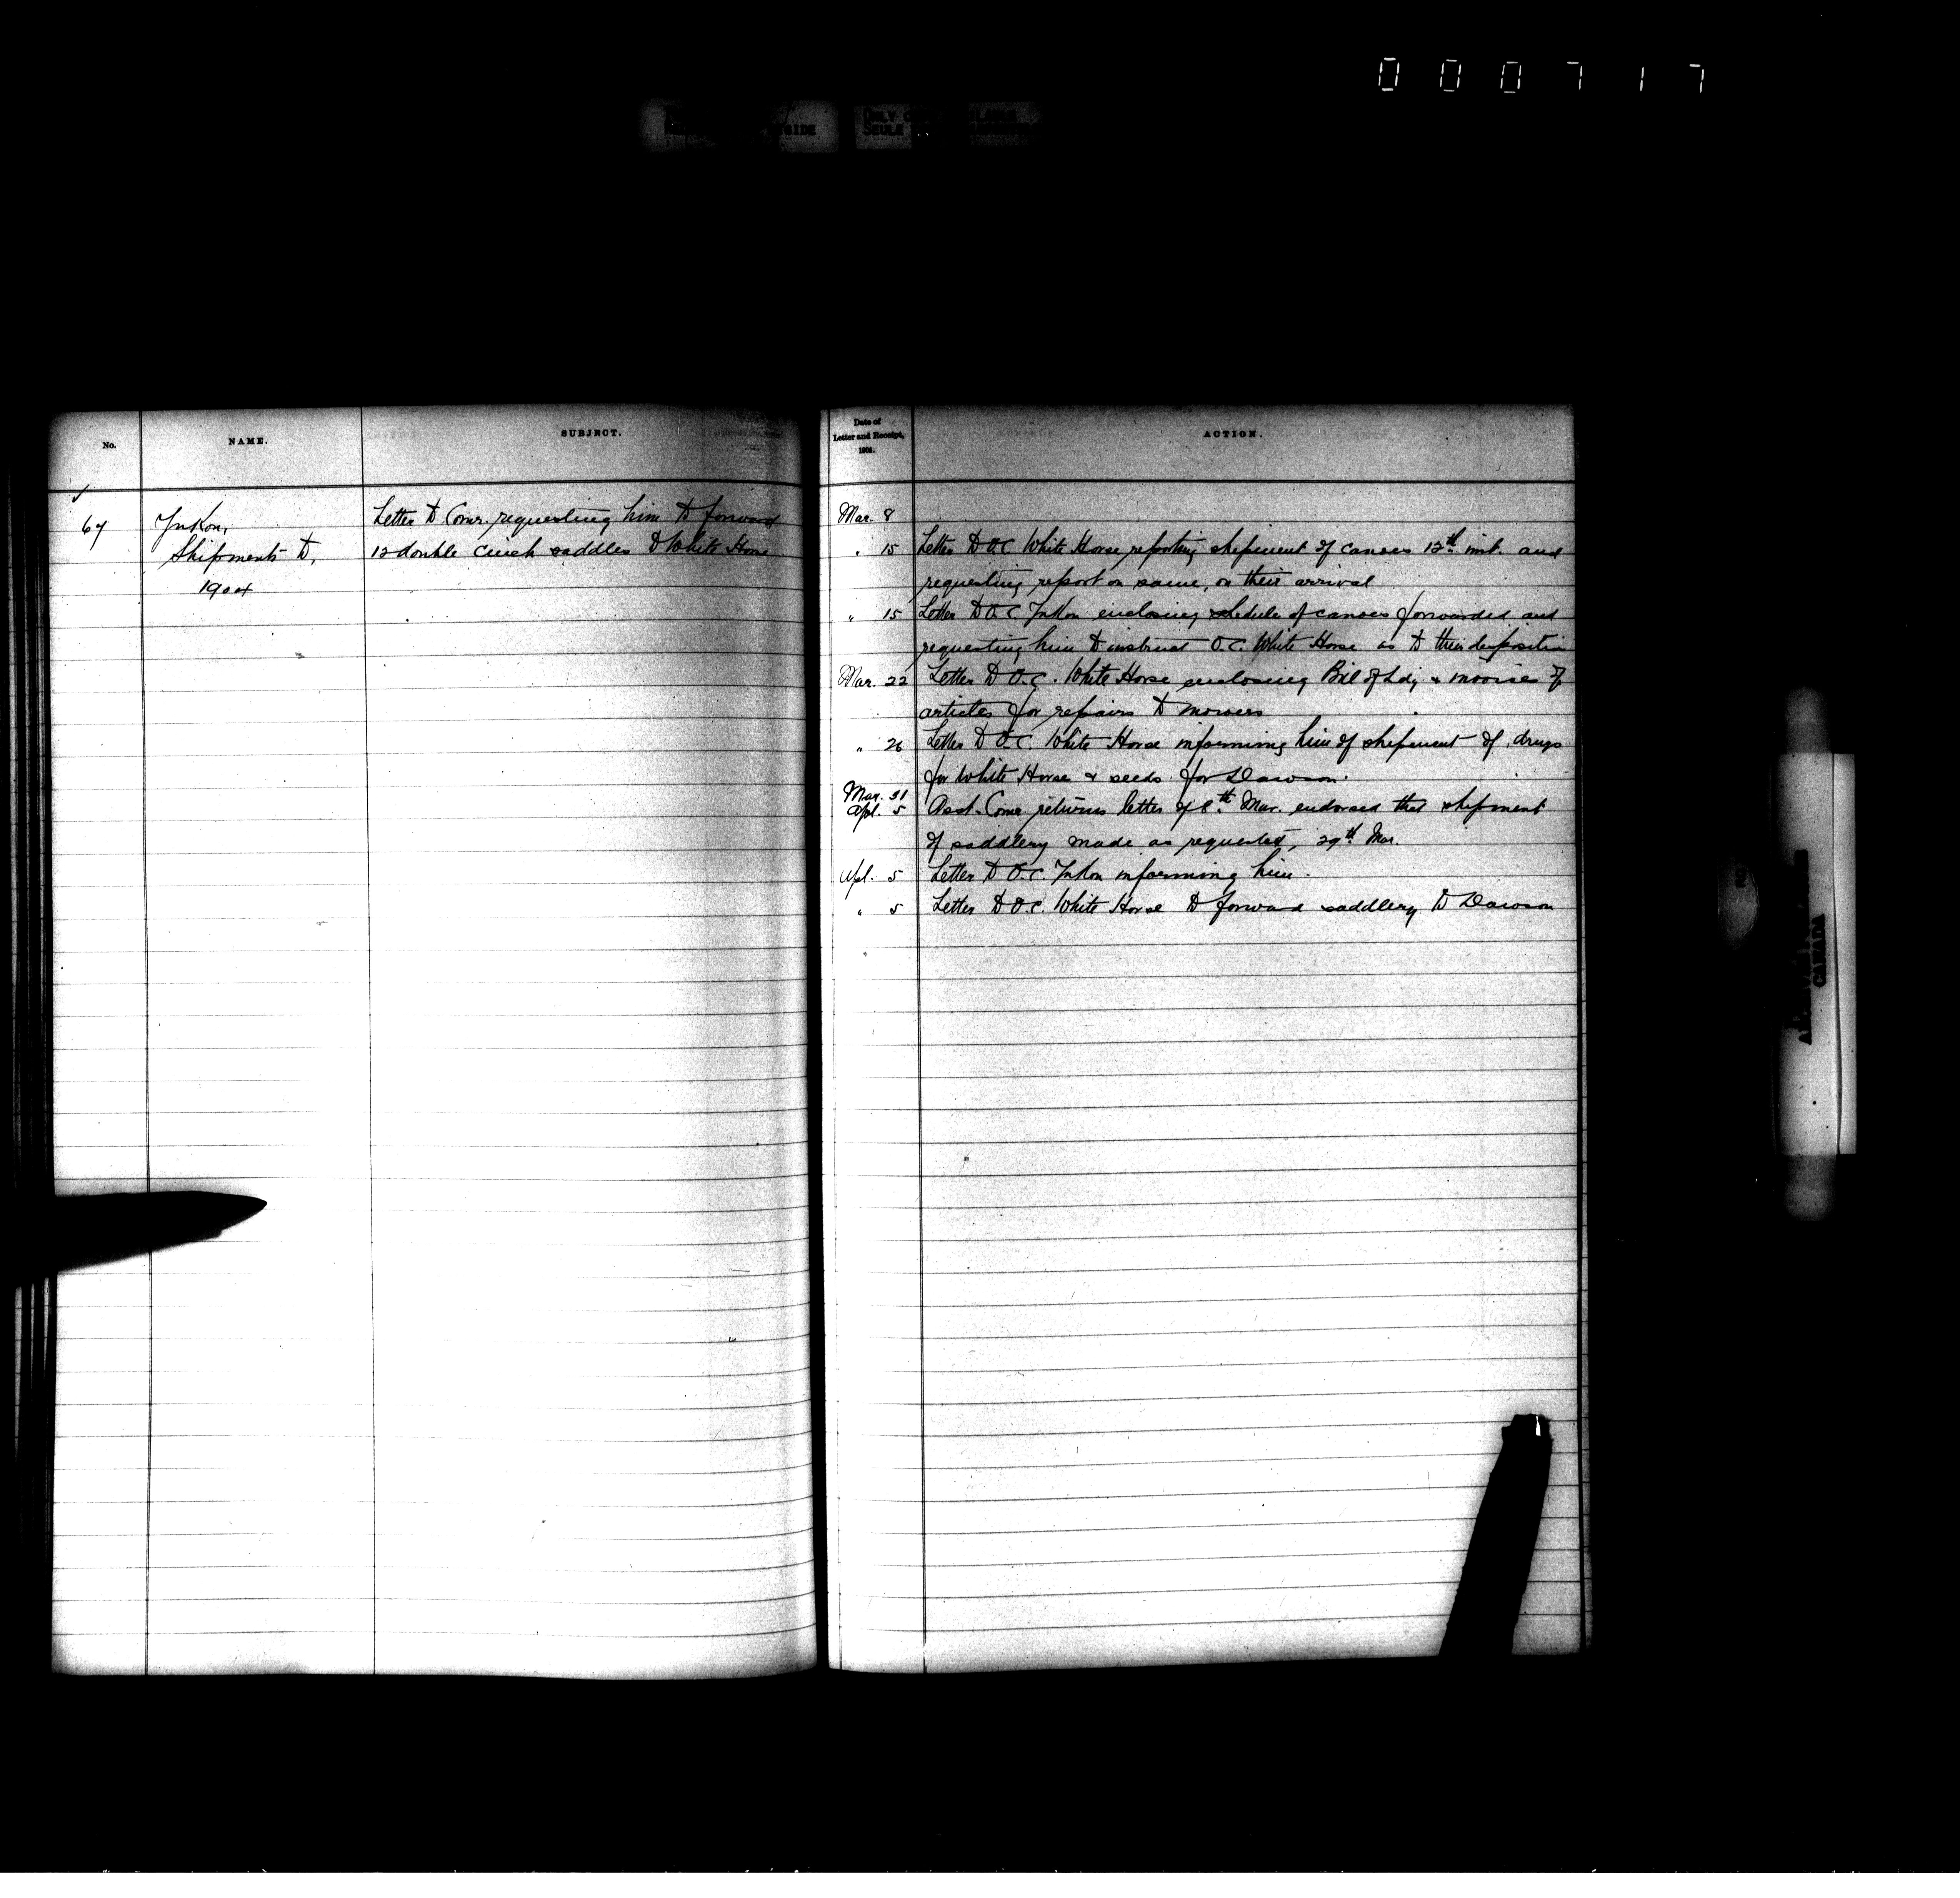 000717
ONLY
SEULE
No.
NAME.
SUBJECT.
Date of
Letter and Receipt,
ACTION.
67
Yukon,
Shipments to,
1904
Letter to Comr. requesting him to forward
12 double cinch saddles to White Horse
Mar. 8
" 15 Letter to O.C. White Horse reporting shipment of canoes 12th inst. and
requesting report on same, on their arrival
" 15 Letter to O.C. Yukon enclosing schedule of canoes forwarded and
requesting him to instruct O.C. White Horse as to their disposition
Mar. 22 Letter to O.C. White Horse enclosing Bill of Ldg & invoices of
articles for repairs to mowers
" 26 Letter to O.C. White Horse informing him of shipment of drugs
for White Horse & seeds for Dawson.
Mar. 31
Apl. 5 Asst. Comr. returns letter of 8th Mar. endorsed that shipment
of saddlery made as requested, 29th Mar.
Apl. 5 Letter to O.C. Yukon informing him.
" 5 Letter to O.C. White Horse to forward saddlery to Dawson
CANADA